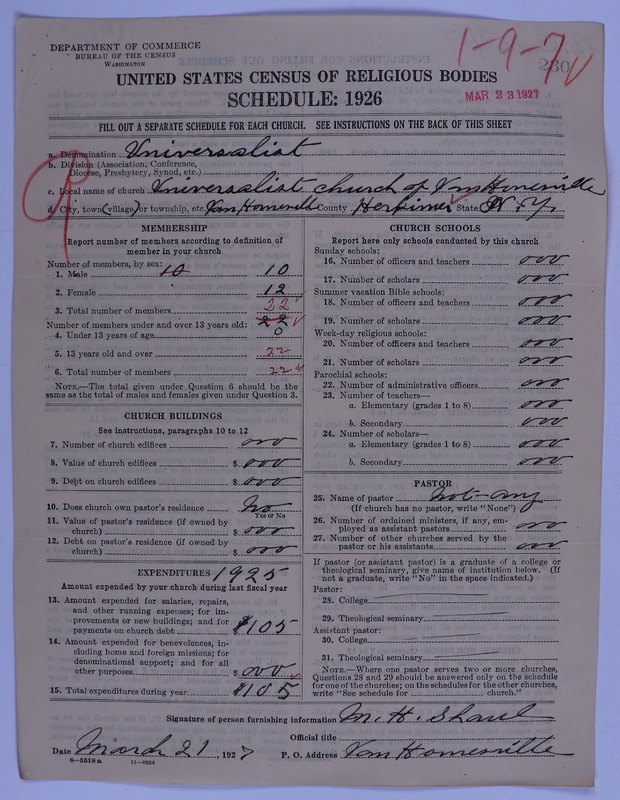 DEPARTMENT OF COMMERCE
BUREAU OF THE CENSUS
WASHINGTON
1-9-7
230
UNITED STATES CENSUS OF RELIGIOUS BODIES
SCHEDULE: 1926
MAR 23 1927
FILL OUT A SEPARATE SCHEDULE FOR EACH CHURCH. SEE INSTRUCTIONS ON THE BACK OF THIS SHEET
a. Denomination Universalist
b. Division (Association, Conference, Diocese, Presbytery, Synod, etc.)
c. Local name of church Universalist church of Van Hornesville
d. City, town (village) or township, etc. Van Hornesville County Herkimer State N.Y.
MEMBERSHIP
Report number of members according to definition of
member in your church
Number of members by sex:
1. Male 10 10
2. Female 12
3. Total number of members 22 22
Number of members under and over 13 years old:
4. Under 13 years of age 0
5. 13 years old and over 22
6. Total number of members 22
NOTE.—The total given under Question 6 should be
same as the total of males and females given under Question 3.
CHURCH BUILDINGS
See instructions, paragraphs 10 to 12
7. Number of church edifices 000
8. Value of church edifices $ 000
9. Debt on church edifices $ 000
10. Does church own pastor's residence No
Yes or No
11. Value of pastor's residence (if owned by
church) $ 000
12. Debt on pastor's residence (if owned by
church) $ 000
EXPENDITURES 1925
Amount expended by your church during last fiscal year
13. Amount expended for salaries, repairs,
and other running expenses; for im-
provements or new buildings; and for
payments on church debt $105
14. Amount expended for benevolences, in-
cluding home and foreign missions; for
denominational support; and for all
other purposes $ 000
15. Total expenditures during year $105
CHURCH SCHOOLS
Report here only schools conducted by this church
Sunday schools:
16. Number of officers and teachers 000
17. Number of scholars 000
Summer vacation Bible schools:
18. Number of officers and teachers 000
19. Number of scholars 000
Week-day religious schools:
20. Number of officers and teachers 000
21. Number of scholars 000
Parochial schools:
22. Number of administrative officers 000
23. Number of teachers—
a. Elementary (grades 1 to 8) 000
b. Secondary 000
24. Number of scholars—
a. Elementary (grades 1 to 8) 000
b. Secondary 000
PASTOR
25. Name of pastor not-any
(If church has no pastor, write "None")
26. Number of ordained ministers, if any, em-
ployed as assistant pastors 00
27. Number of other churches served by the
pastor or his assistants 00
If pastor (or assistant pastor) is a graduate of a college or
theological seminary, give name of institution below. (If
not a graduate, write "No" in the space indicated.)
Pastor:
28. College
29. Theological seminary
Assistant pastor:
30. College
31. Theological seminary
NOTE.—Where one pastor serves two or more churches,
Questions 28 and 29 should be answered only on the schedule
for one of the churches; on the schedules for the other churches,
write "See schedule for church."
Signature of person furnishing information M. H. Shaul
Official title
Date March 21, 1927 P. O. Address Van Hornesville
8—5518a 11—9054